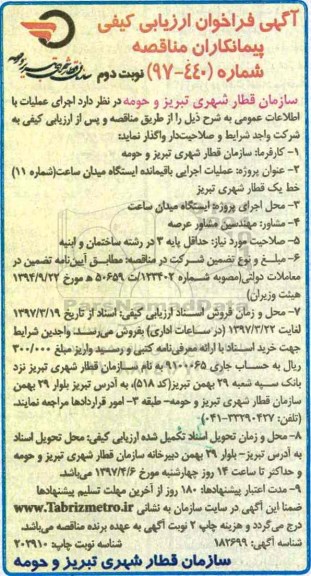 آگهی فراخوان ارزیابی کیفی
پیمانکاران مناقصه
شماره (۴۴۰-۹۷) نوبت دوم
سازمان قطار شهری تبریز و حومه در نظر دارد اجرای عملیات با
اطلاعات عمومی به شرح ذیل را از طریق مناقصه و پس از ارزیابی کیفی به
شرکت واجد شرایط و صلاحیت‌دار واگذار نماید:
۱- کارفرما: سازمان قطار شهری تبریز و حومه
۲- عنوان پروژه: عملیات اجرایی باقیمانده ایستگاه میدان ساعت(شماره ۱۱)
خط یک قطار شهری تبریز
۳- محل اجرای پروژه: ایستگاه میدان ساعت
۴- مشاور: مهندسین مشاور عرصه
۵- صلاحیت مورد نیاز: حداقل پایه ۳ در رشته ساختمان و ابنیه
۶- مبلغ و نوع تضمین شرکت در مناقصه: مطابق آیین‌نامه تضمین در
معاملات دولتی(مصوبه شماره ۱۲۳۴۰۲/ت ۵۰۶۵۹ ه مورخ ۱۳۹۴/۹/۲۲
هیئت وزیران)
۷- محل و زمان فروش اسناد ارزیابی کیفی: اسناد از تاریخ ۱۳۹۷/۳/۱۹
لغایت ۱۳۹۷/۳/۲۲ (در ساعات اداری) بفروش می‌رسد. واجدین شرایط
جهت خرید اسناد با ارائه معرفی‌نامه کتبی و رسید واریز مبلغ ۳۰۰/۰۰۰
ریال به حساب جاری ۹۱۰۰۰۶۵ به نام سازمان قطار شهری تبریز نزد
بانک سپه شعبه ۲۹ بهمن تبریز(کد ۵۱۸)، به آدرس تبریز بلوار ۲۹ بهمن
سازمان قطار شهری تبریز و حومه- طبقه ۳- امور قراردادها مراجعه نمایند.
(تلفن: ۳۳۲۹۰۴۲۷-۰۴۱)
۸- محل و زمان تحویل اسناد تکمیل شده ارزیابی کیفی: محل تحویل اسناد
به آدرس تبریز- بلوار ۲۹ بهمن دبیرخانه سازمان قطار شهری تبریز و حومه
و حداکثر تا ساعت ۱۴ روز چهارشنبه مورخ ۱۳۹۷/۴/۶ می‌باشد.
۹- مدت اعتبار پیشنهادها: ۱۸۰ روز از آخرین مهلت تسلیم پیشنهادها
ضمنا این آگهی در سایت سازمان به نشانی www.Tabrizmetro.ir
درج می‌گردد و هزینه چاپ ۲ نوبت آگهی به عهده برنده مناقصه می‌باشد.
شناسه آگهی: ۱۸۲۶۹۹ شناسه نوبت چاپ: ۲۰۲۹۱۰
سازمان قطار شهری تبریز و حومه